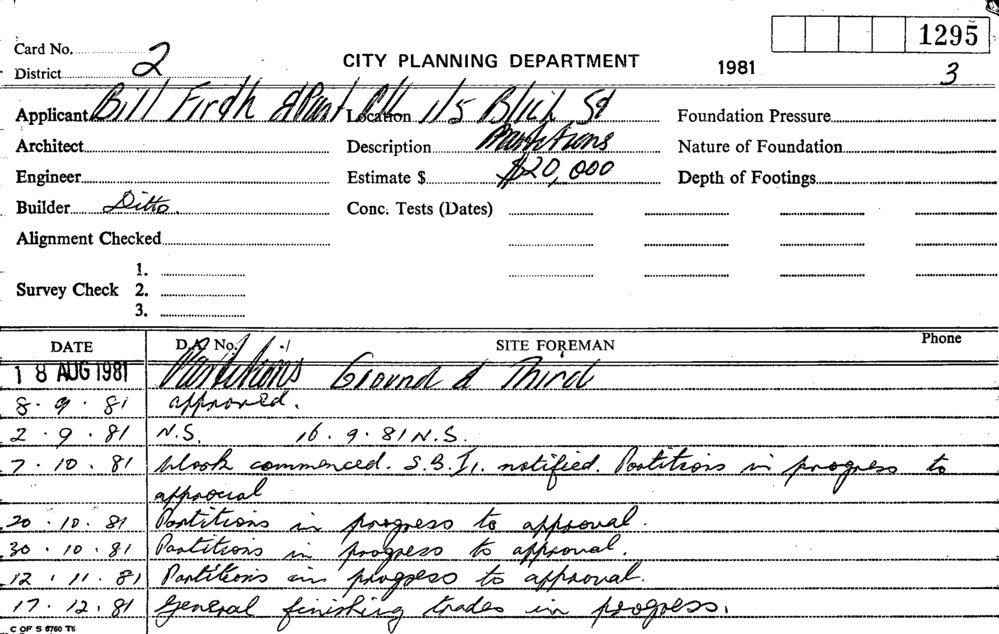 1295
Card No. 2
CITY PLANNING DEPARTMENT 1981 3
District
Applicant Bill Firth Location 1/5 Bligh St Foundation Pressure
Architect Description Partitions Nature of Foundation
Engineer Estimate $ $20,000 Depth of Footings
Builder Ditto. Conc. Tests (Dates)
Alignment Checked
1.
Survey Check 2.
3.
DATE D.A. No. :/ SITE FOREMAN Phone
18 AUG 1981 Partitions Ground & Third
8.9.81 approved.
2.9.81 N.S. 16.9.81 N.S.
7.10.81 Work commenced. S.B.I. notified. Partitions in progress to
approval
20.10.81 Partitions in progress to approval.
30.10.81 Partitions in progress to approval.
12.11.81 Partitions in progress to approval.
17.12.81 General finishing trades in progress.
C OF S 6760 T6